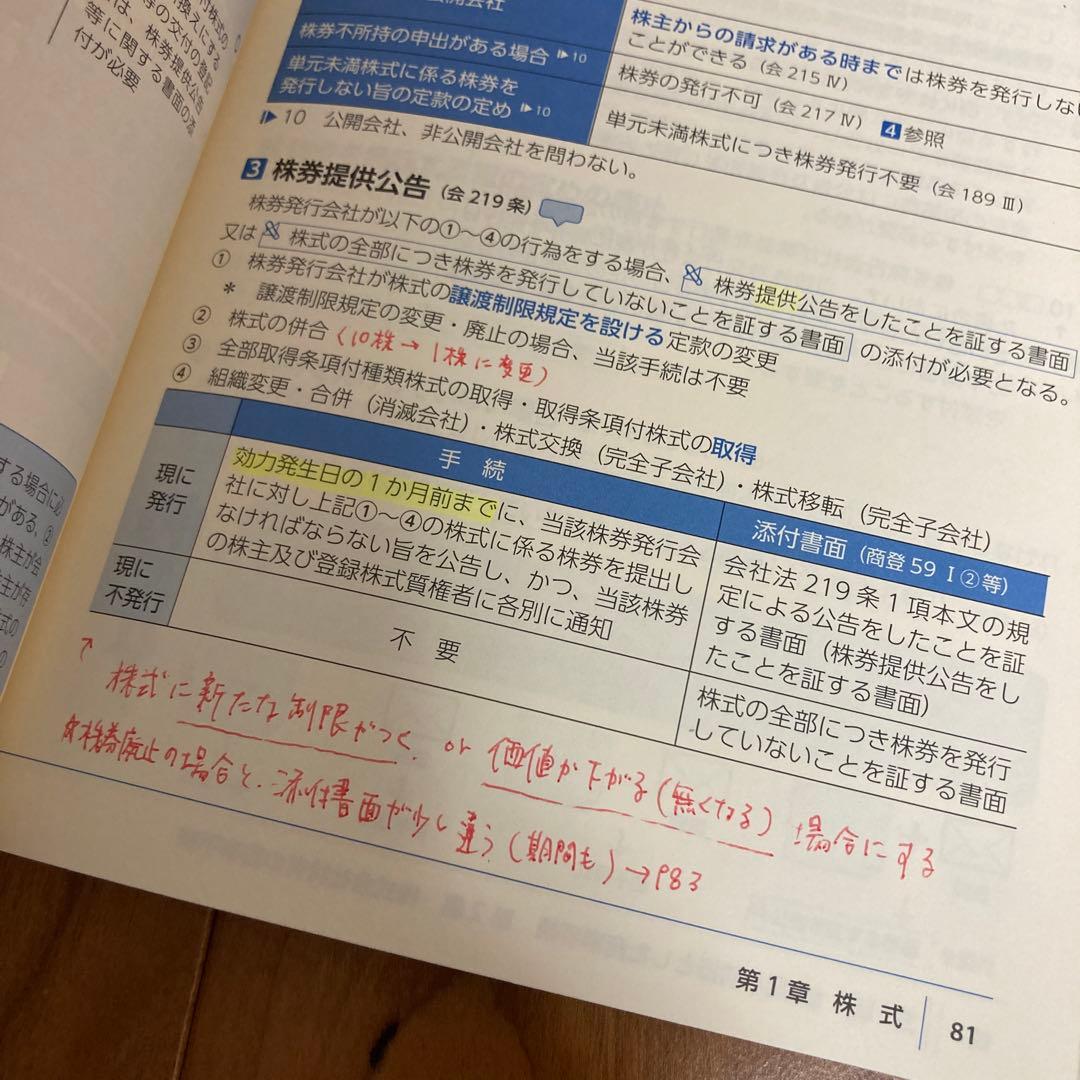 付株式の
換えにする
等の交付の登記
は、株券提供公告
等に関する書面の添
付が必要
する場合に必
がある、②
株主が会
主が存
式の
の
公開会社
株主からの請求がある時までは株券を発行しない
ことができる(会215Ⅳ)
株券不所持の申出がある場合 ▶10
株券の発行不可(会217Ⅳ) 4参照
単元未満株式に係る株券を
発行しない旨の定款の定め ▶10
単元未満株式につき株券発行不要(会189Ⅲ)
▶10 公開会社、非公開会社を問わない。
3 株券提供公告(会219条)
株券発行会社が以下の①〜④の行為をする場合、株券提供公告をしたことを証する書面
又は株式の全部につき株券を発行していないことを証する書面の添付が必要となる。
① 株券発行会社が株式の譲渡制限規定を設ける定款の変更
* 譲渡制限規定の変更・廃止の場合、当該手続は不要
② 株式の併合(10株→1株に変更)
③ 全部取得条項付種類株式の取得・取得条項付株式の取得
④ 組織変更・合併(消滅会社)・株式交換(完全子会社)・株式移転(完全子会社)
手続
添付書面(商登59Ⅰ②等)
現に
発行
効力発生日の1か月前までに、当該株券発行会
社に対し上記①〜④の株式に係る株券を提出し
なければならない旨を公告し、かつ、当該株券
の株主及び登録株式質権者に各別に通知
会社法219条1項本文の規
定による公告をしたことを証
する書面(株券提供公告をし
たことを証する書面)
現に
不発行
不要
株式の全部につき株券を発行
していないことを証する書面
↑
株式に新たな制限がつく or 価値が下がる(無くなる)場合にする
☆株券廃止の場合と、添付書面が少し違う(期間も)→P83
第1章 株式
81